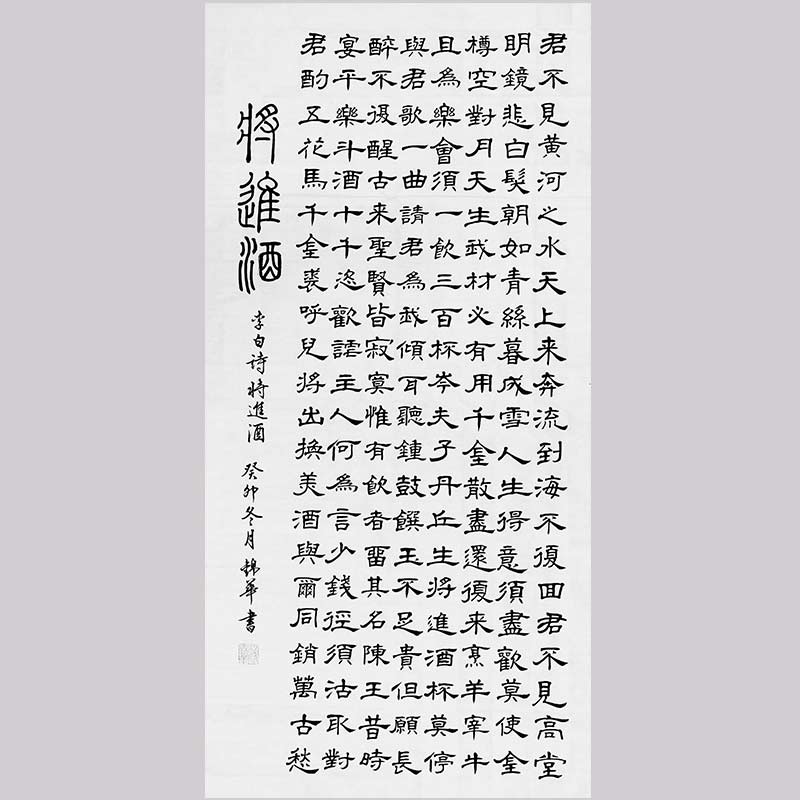 君不見黃河之水天上来奔流到海不復回君不見高堂
明鏡悲白髮朝如青絲暮成雪人生得意須盡歡莫使金
樽空對月天生我材必有用千金散盡還復来烹羊宰牛
且為樂會須一飲三百杯岑夫子丹丘生將進酒杯莫停
與君歌一曲請君為我傾耳聽鍾鼓饌玉不足貴但願長
醉不復醒古来聖賢皆寂寞惟有飲者留其名陳王昔時
宴平樂斗酒十千恣歡謔主人何為言少錢徑須沽取對
君酌五花馬千金裘呼兒將出換美酒與爾同銷萬古愁
將進酒
李白詩將進酒 癸卯冬月 錦華書